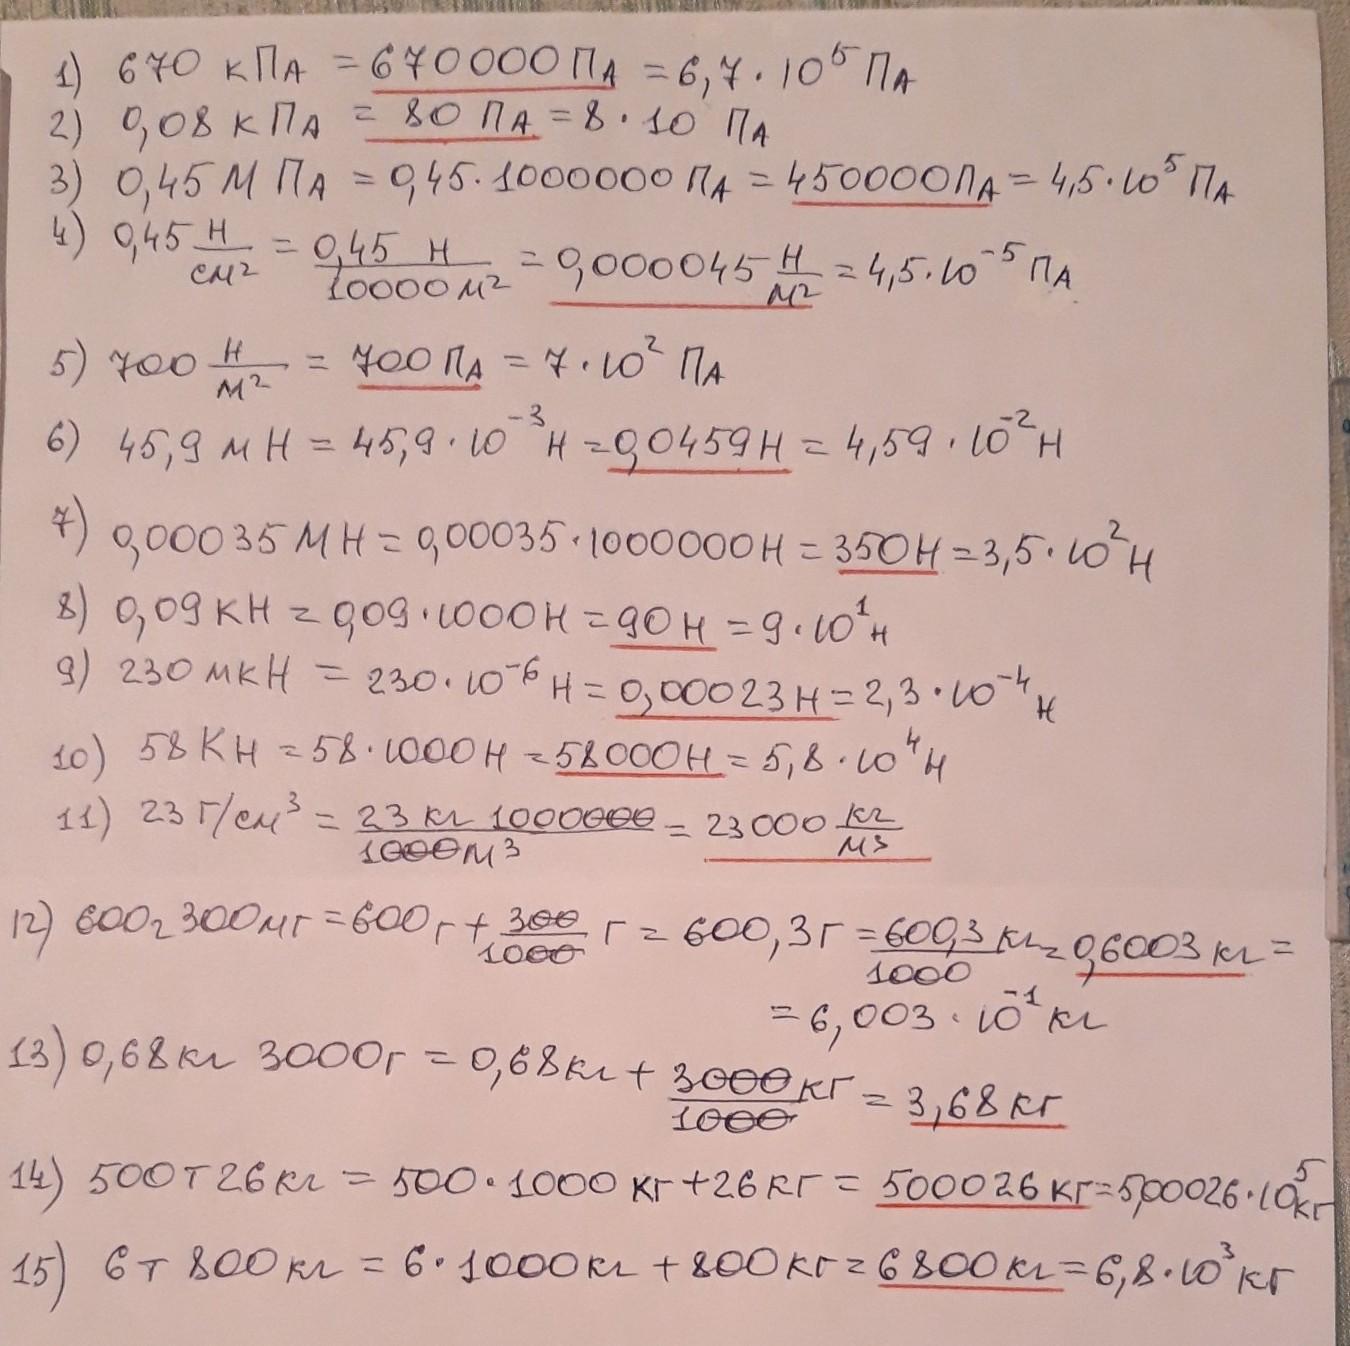 1) 670 кПА = 670000 ПА = 6,7 · 10⁵ ПА
2) 0,08 кПА = 80 ПА = 8 · 10 ПА
3) 0,45 М ПА = 0,45 · 1000000 ПА = 450000 ПА = 4,5 · 10⁵ ПА
4) 0,45 Н/см² = 0,45 Н/10000 м² = 0,000045 Н/м² = 4,5 · 10⁻⁵ ПА
5) 700 Н/м² = 700 ПА = 7 · 10² ПА
6) 45,9 мН = 45,9 · 10⁻³ Н = 0,0459 Н = 4,59 · 10⁻² Н
7) 0,00035 МН = 0,00035 · 1000000 Н = 350 Н = 3,5 · 10² Н
8) 0,09 КН = 0,09 · 1000 Н = 90 Н = 9 · 10¹ Н
9) 230 мкН = 230 · 10⁻⁶ Н = 0,00023 Н = 2,3 · 10⁻⁴ Н
10) 58 КН = 58 · 1000 Н = 58000 Н = 5,8 · 10⁴ Н
11) 23 Г/см³ = 23 кг 1000000/1000 м³ = 23000 кг/м³
12) 600г 300мг = 600г + 300/1000 г = 600,3г = 600,3 кг/1000 = 0,6003 кг =
= 6,003 · 10⁻¹ кг
13) 0,68 кг 3000г = 0,68 кг + 3000/1000 кг = 3,68 кг
14) 500т 26кг = 500 · 1000 кг + 26 кг = 500026 кг = 5,00026 · 10⁵ кг
15) 6т 800кг = 6 · 1000кг + 800кг = 6800кг = 6,8 · 10³ кг